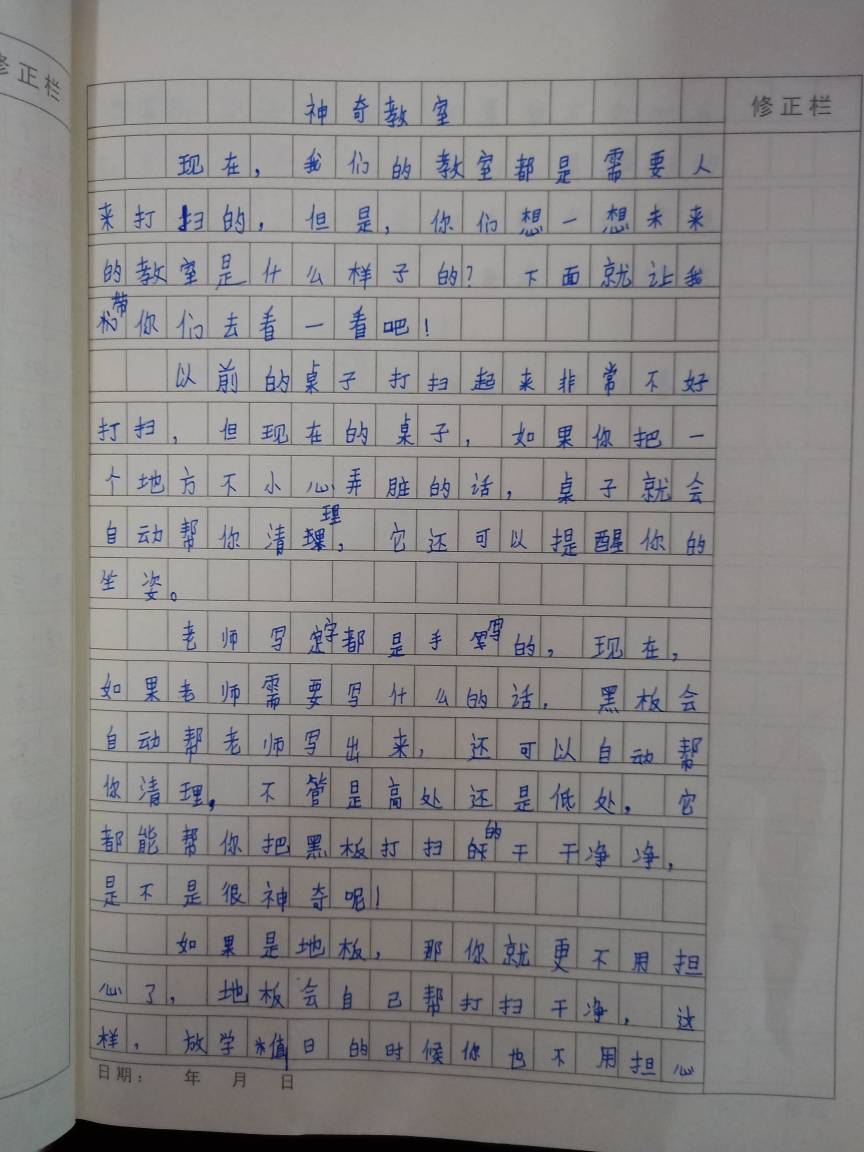 修正栏
修正栏
神奇教室
现在，我们的教室都是需要人
来打扫的，但是，你们想一想未来
的教室是什么样子的？下面就让我
带你们去看一看吧！
以前的桌子打扫起来非常不好
打扫，但现在的桌子，如果你把一
个地方不小心弄脏的话，桌子就会
自动帮你清理，它还可以提醒你的
坐姿。
老师写字都是手写的，现在，
如果老师需要写什么的话，黑板会
自动帮老师写出来，还可以自动帮
你清理，不管是高处还是低处，它
都能帮你把黑板打扫的干干净净，
是不是很神奇呢！
如果是地板，那你就更不用担
心了，地板会自己帮打扫干净，这
样，放学值日的时候你也不用担心
日期： 年 月 日